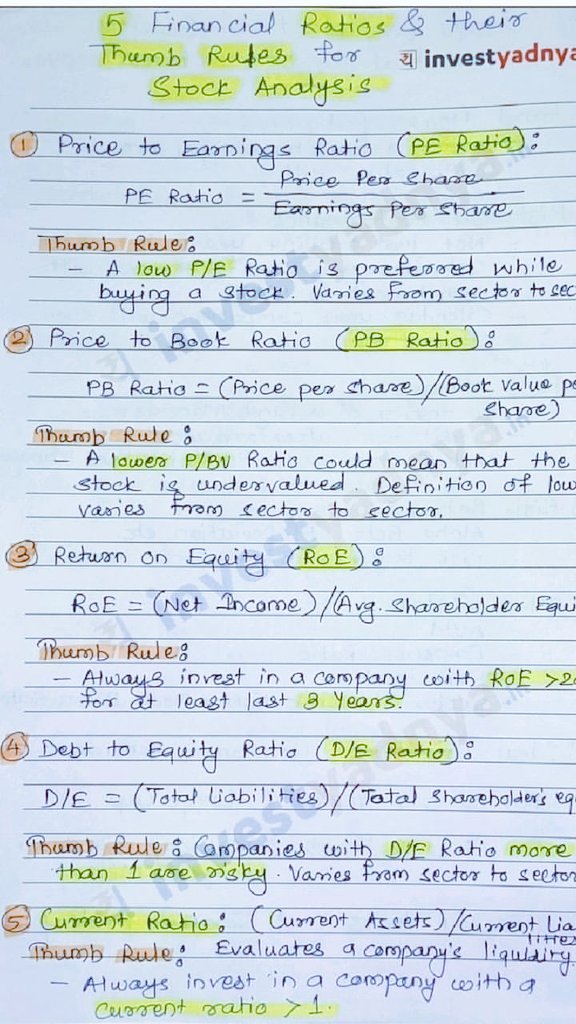 5 Financial Ratios & their
Thumb Rules for
य investyadnya
Stock Analysis
1 Price to Earnings Ratio (PE Ratio):
PE Ratio = Price Per Share
Earnings Per Share
Thumb Rule:
- A low P/E Ratio is preferred while
buying a stock. Varies from sector to sec
2 Price to Book Ratio (PB Ratio):
PB Ratio = (Price per share)/(Book value pe
share)
Thumb Rule:
- A lower P/BV Ratio could mean that the
stock is undervalued. Definition of low
varies from sector to sector.
3 Return on Equity (RoE):
RoE = (Net Income)/(Avg. Shareholder Equi
Thumb Rule:
- Always invest in a company with RoE >20
for at least last 3 Years.
4 Debt to Equity Ratio (D/E Ratio):
D/E = (Total Liabilities)/(Total shareholder's equ
Thumb Rule: Companies with D/E Ratio more
than 1 are risky. Varies from sector to sector
5 Current Ratio: (Current Assets)/Current Lia
lities
Thumb Rule: Evaluates a company's liquidity.
- Always invest in a company with a
current ratio > 1.